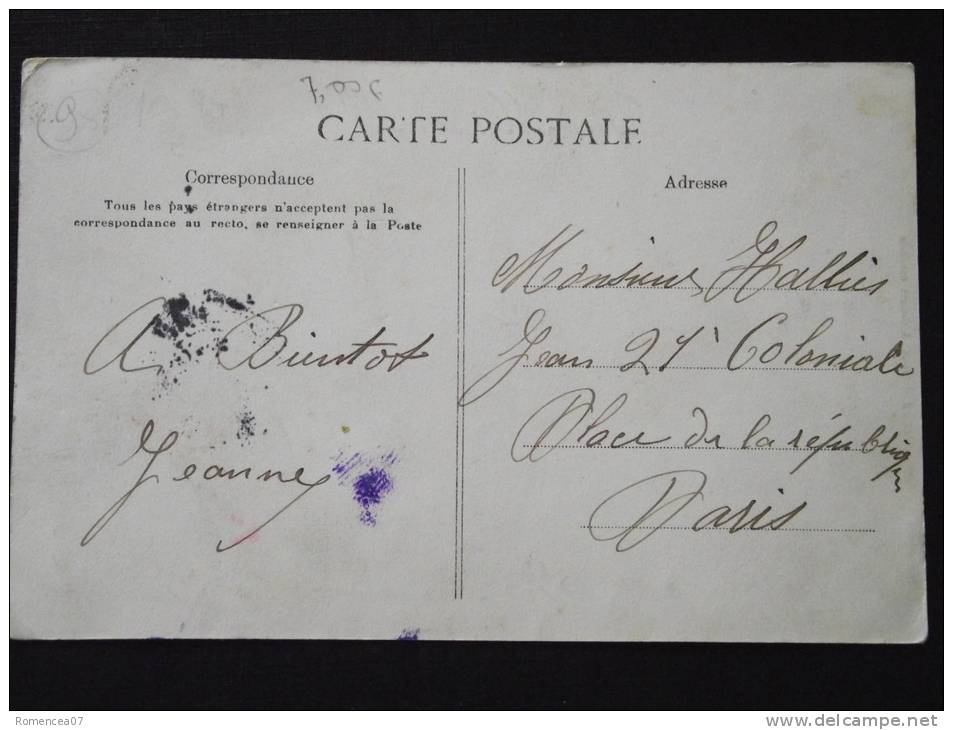 9
7,00€
CARTE POSTALE
Correspondance
Tous les pays étrangers n'acceptent pas la
correspondance au recto, se renseigner à la Poste
A Bientot
Jeanne
Adresse
Monsieur Hallies
Jean 21e Coloniale
Place de la républiq
Paris
Romencea07
www.delcampe.net